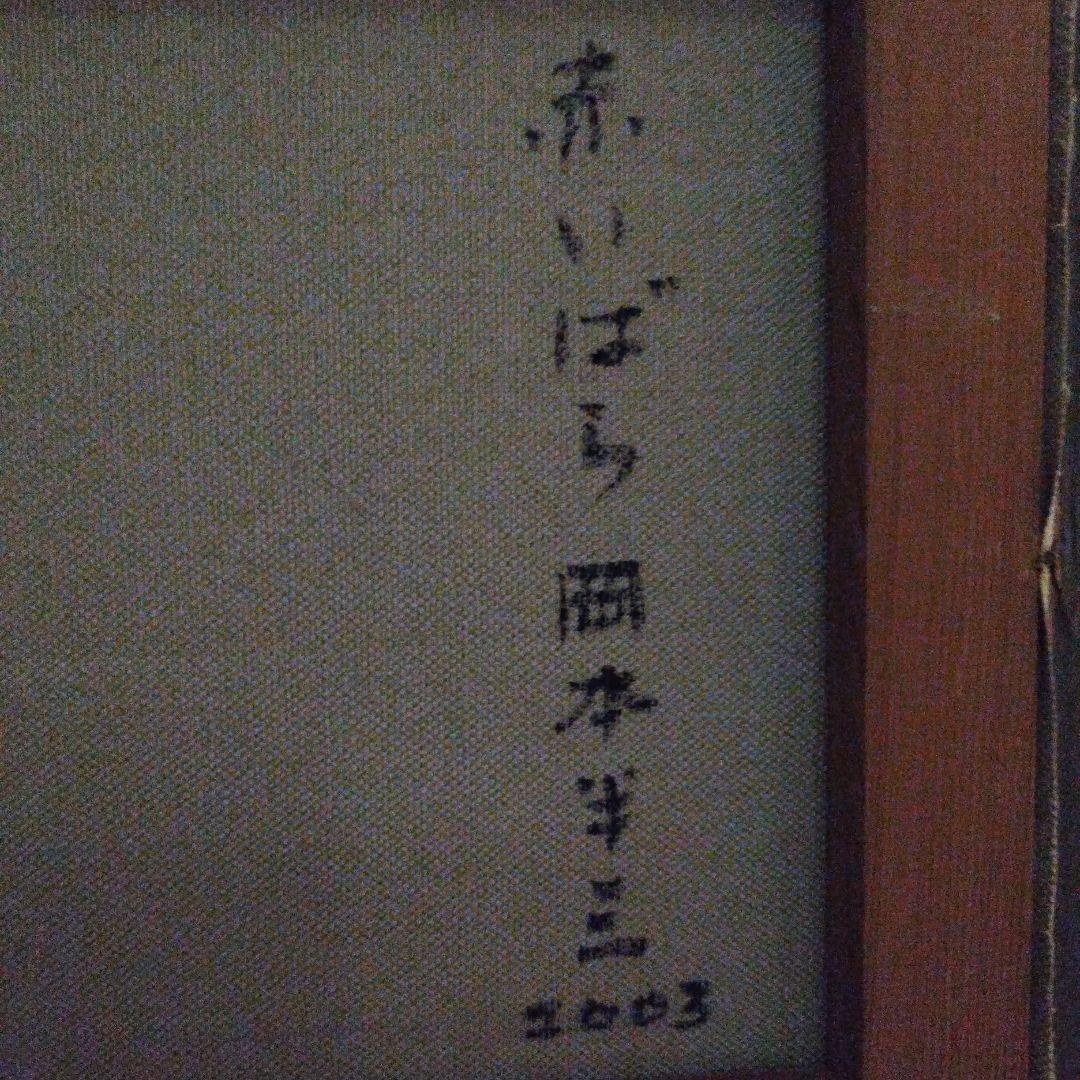 赤いばら 岡本半三
2003